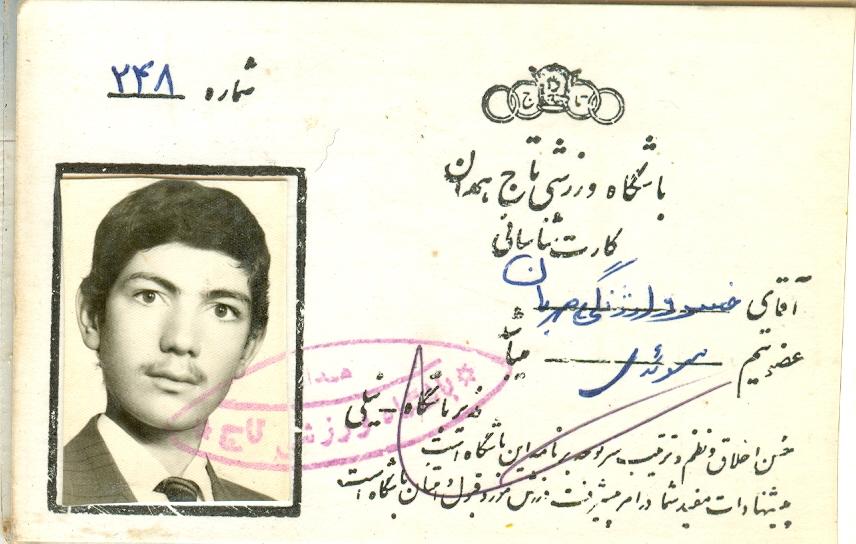 شماره ۲۴۸
تاج
باشگاه ورزشی تاج همدان
کارت شناسائی
آقای خسرو ارژنگی مهربان
عضو تیم میباشد
مدیر باشگاه - نیلی
حسن اخلاق و نظم و ترتیب سرلوحه برنامه این باشگاه است
پیشنهادات مفید شما در امر پیشرفت ورزش مورد قبول و امتنان باشگاه است